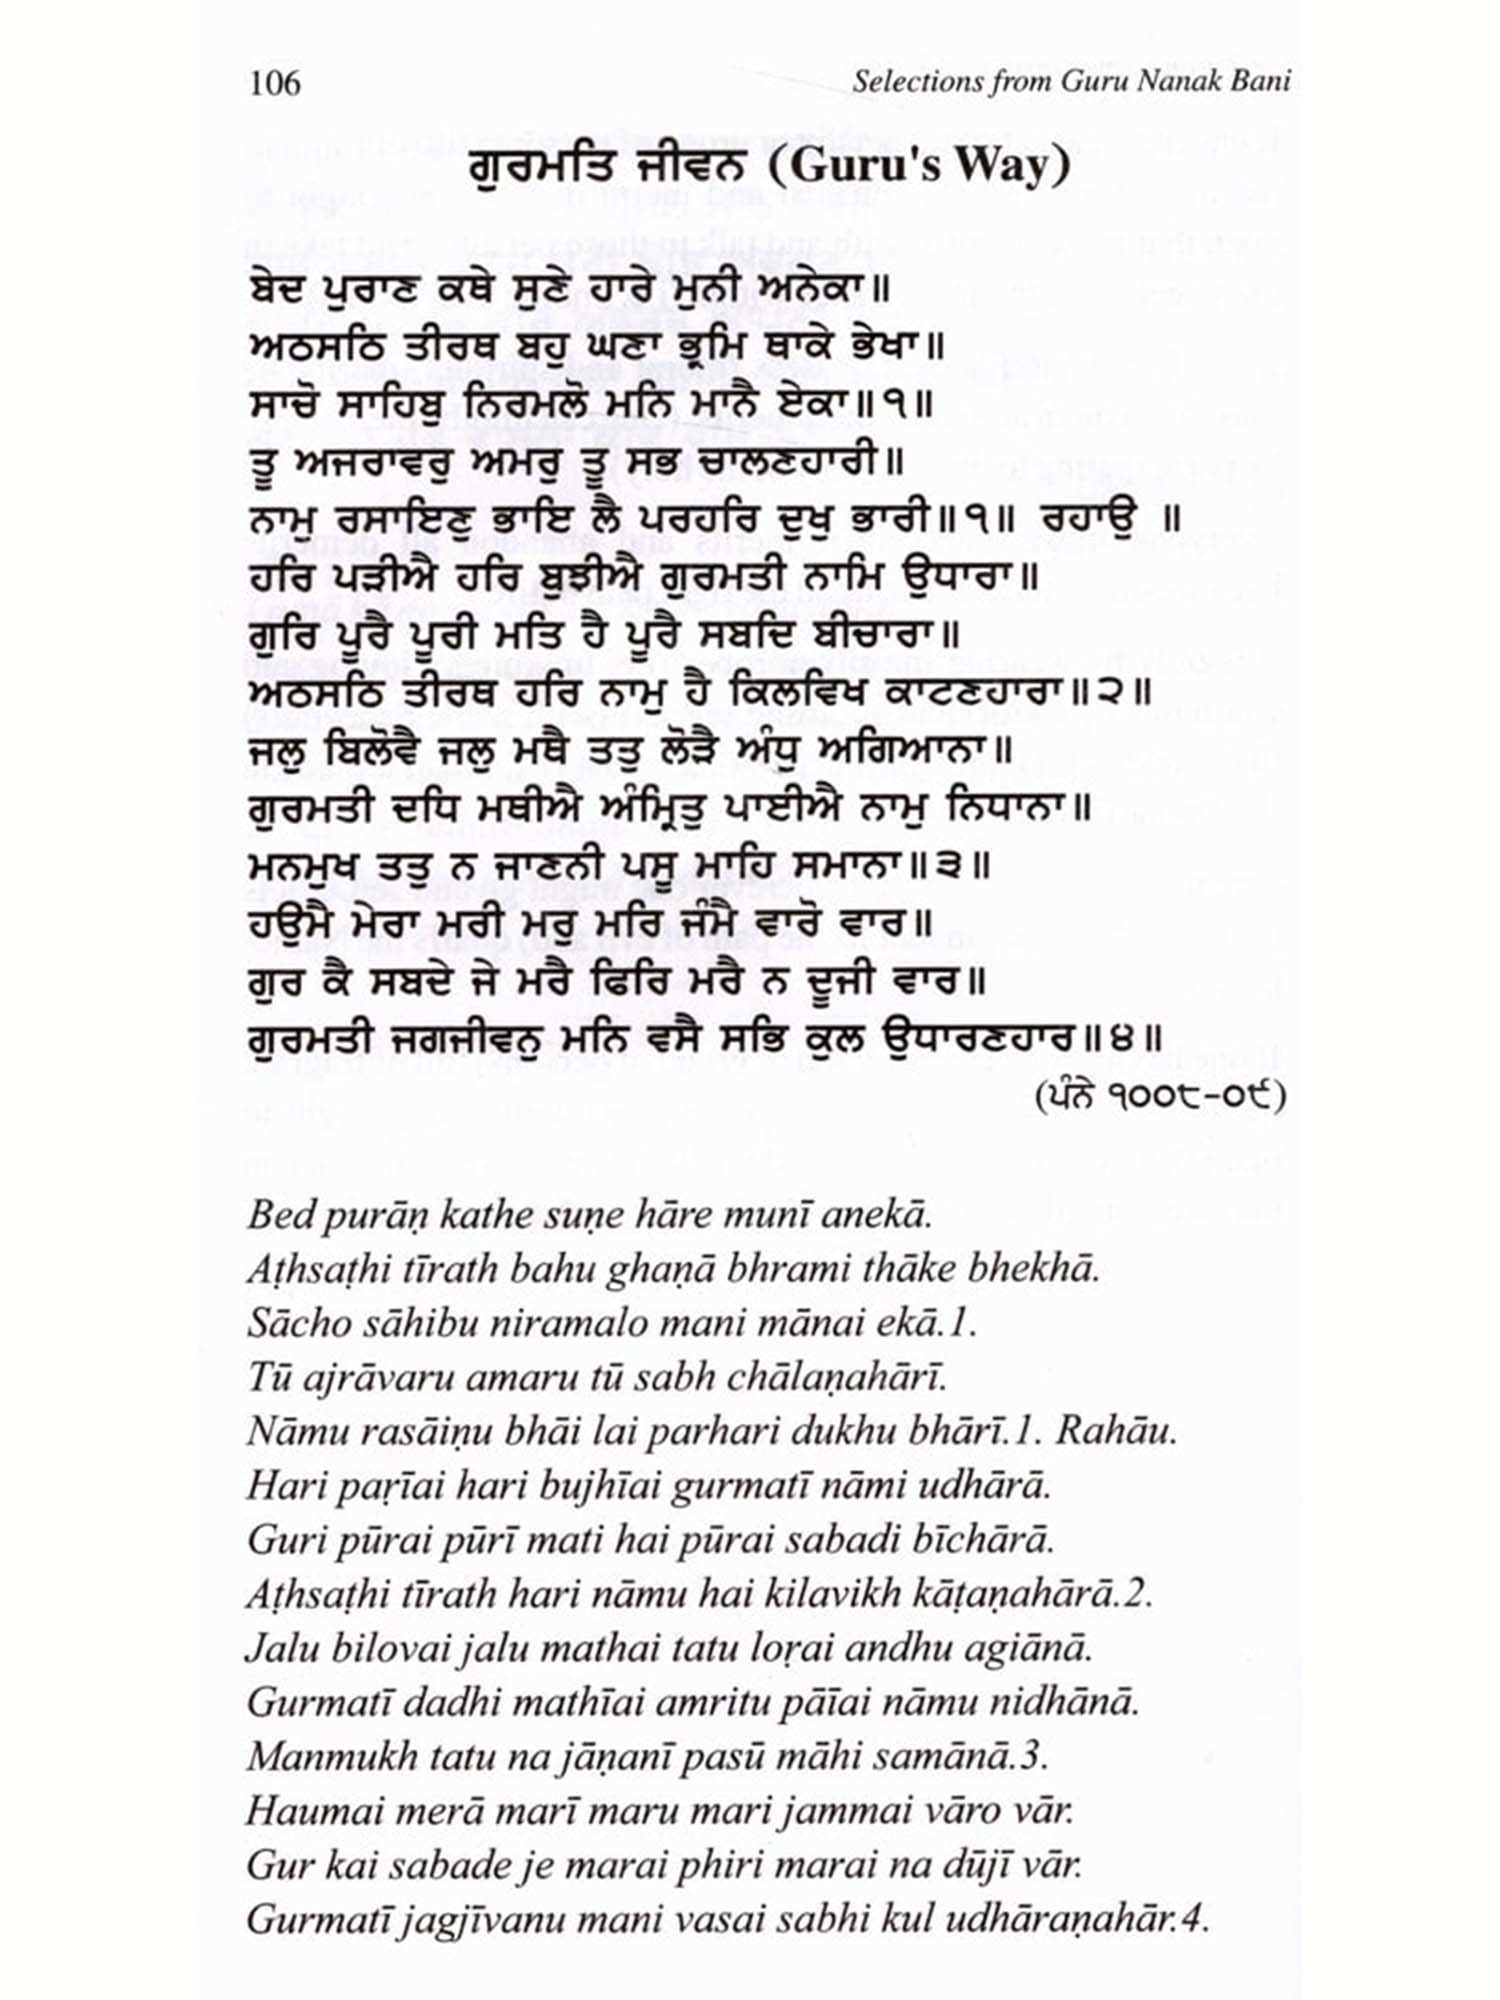 106
Selections from Guru Nanak Bani
ਗੁਰਮਤਿ ਜੀਵਨ (Guru's Way)
ਬੇਦ ਪੁਰਾਣ ਕਥੇ ਸੁਣੇ ਹਾਰੇ ਮੁਨੀ ਅਨੇਕਾ॥
ਅਠਸਠਿ ਤੀਰਥ ਬਹੁ ਘਣਾ ਭ੍ਰਮਿ ਥਾਕੇ ਭੇਖਾ॥
ਸਾਚੋ ਸਾਹਿਬੁ ਨਿਰਮਲੋ ਮਨਿ ਮਾਨੈ ਏਕਾ॥੧॥
ਤੂ ਅਜਰਾਵਰੁ ਅਮਰੁ ਤੂ ਸਭ ਚਾਲਣਹਾਰੀ॥
ਨਾਮੁ ਰਸਾਇਣੁ ਭਾਇ ਲੈ ਪਰਹਰਿ ਦੁਖੁ ਭਾਰੀ॥੧॥ ਰਹਾਉ ॥
ਹਰਿ ਪੜੀਐ ਹਰਿ ਬੁਝੀਐ ਗੁਰਮਤੀ ਨਾਮਿ ਉਧਾਰਾ॥
ਗੁਰਿ ਪੂਰੈ ਪੂਰੀ ਮਤਿ ਹੈ ਪੂਰੈ ਸਬਦਿ ਬੀਚਾਰਾ॥
ਅਠਸਠਿ ਤੀਰਥ ਹਰਿ ਨਾਮੁ ਹੈ ਕਿਲਵਿਖ ਕਾਟਣਹਾਰਾ॥੨॥
ਜਲੁ ਬਿਲੋਵੈ ਜਲੁ ਮਥੈ ਤਤੁ ਲੋੜੈ ਅੰਧੁ ਅਗਿਆਨਾ॥
ਗੁਰਮਤੀ ਦਧਿ ਮਥੀਐ ਅੰਮ੍ਰਿਤੁ ਪਾਈਐ ਨਾਮੁ ਨਿਧਾਨਾ॥
ਮਨਮੁਖ ਤਤੁ ਨ ਜਾਣਨੀ ਪਸੂ ਮਾਹਿ ਸਮਾਨਾ॥੩॥
ਹਉਮੈ ਮੇਰਾ ਮਰੀ ਮਰੁ ਮਰਿ ਜੰਮੈ ਵਾਰੋ ਵਾਰ॥
ਗੁਰ ਕੈ ਸਬਦੇ ਜੇ ਮਰੈ ਫਿਰਿ ਮਰੈ ਨ ਦੂਜੀ ਵਾਰ॥
ਗੁਰਮਤੀ ਜਗਜੀਵਨੁ ਮਨਿ ਵਸੈ ਸਭਿ ਕੁਲ ਉਧਾਰਣਹਾਰ॥੪॥
(ਪੰਨੇ ੧੦੦੮-੦੯)
Bed purāṇ kathe suṇe hāre munī anekā.
Aṭhsaṭhi tīrath bahu ghaṇā bhrami thāke bhekhā.
Sācho sāhibu niramalo mani mānai ekā.1.
Tū ajrāvaru amaru tū sabh chālaṇahārī.
Nāmu rasāiṇu bhāi lai parhari dukhu bhārī.1. Rahāu.
Hari paṛīai hari bujhīai gurmatī nāmi udhārā.
Guri pūrai pūrī mati hai pūrai sabadi bīchārā.
Aṭhsaṭhi tīrath hari nāmu hai kilavikh kāṭaṇahārā.2.
Jalu bilovai jalu mathai tatu loṛai andhu agiānā.
Gurmatī dadhi mathīai amritu pāīai nāmu nidhānā.
Manmukh tatu na jāṇanī pasū māhi samānā.3.
Haumai merā marī maru mari jammai vāro vār.
Gur kai sabade je marai phiri marai na dūjī vār.
Gurmatī jagjīvanu mani vasai sabhi kul udhāraṇahār.4.